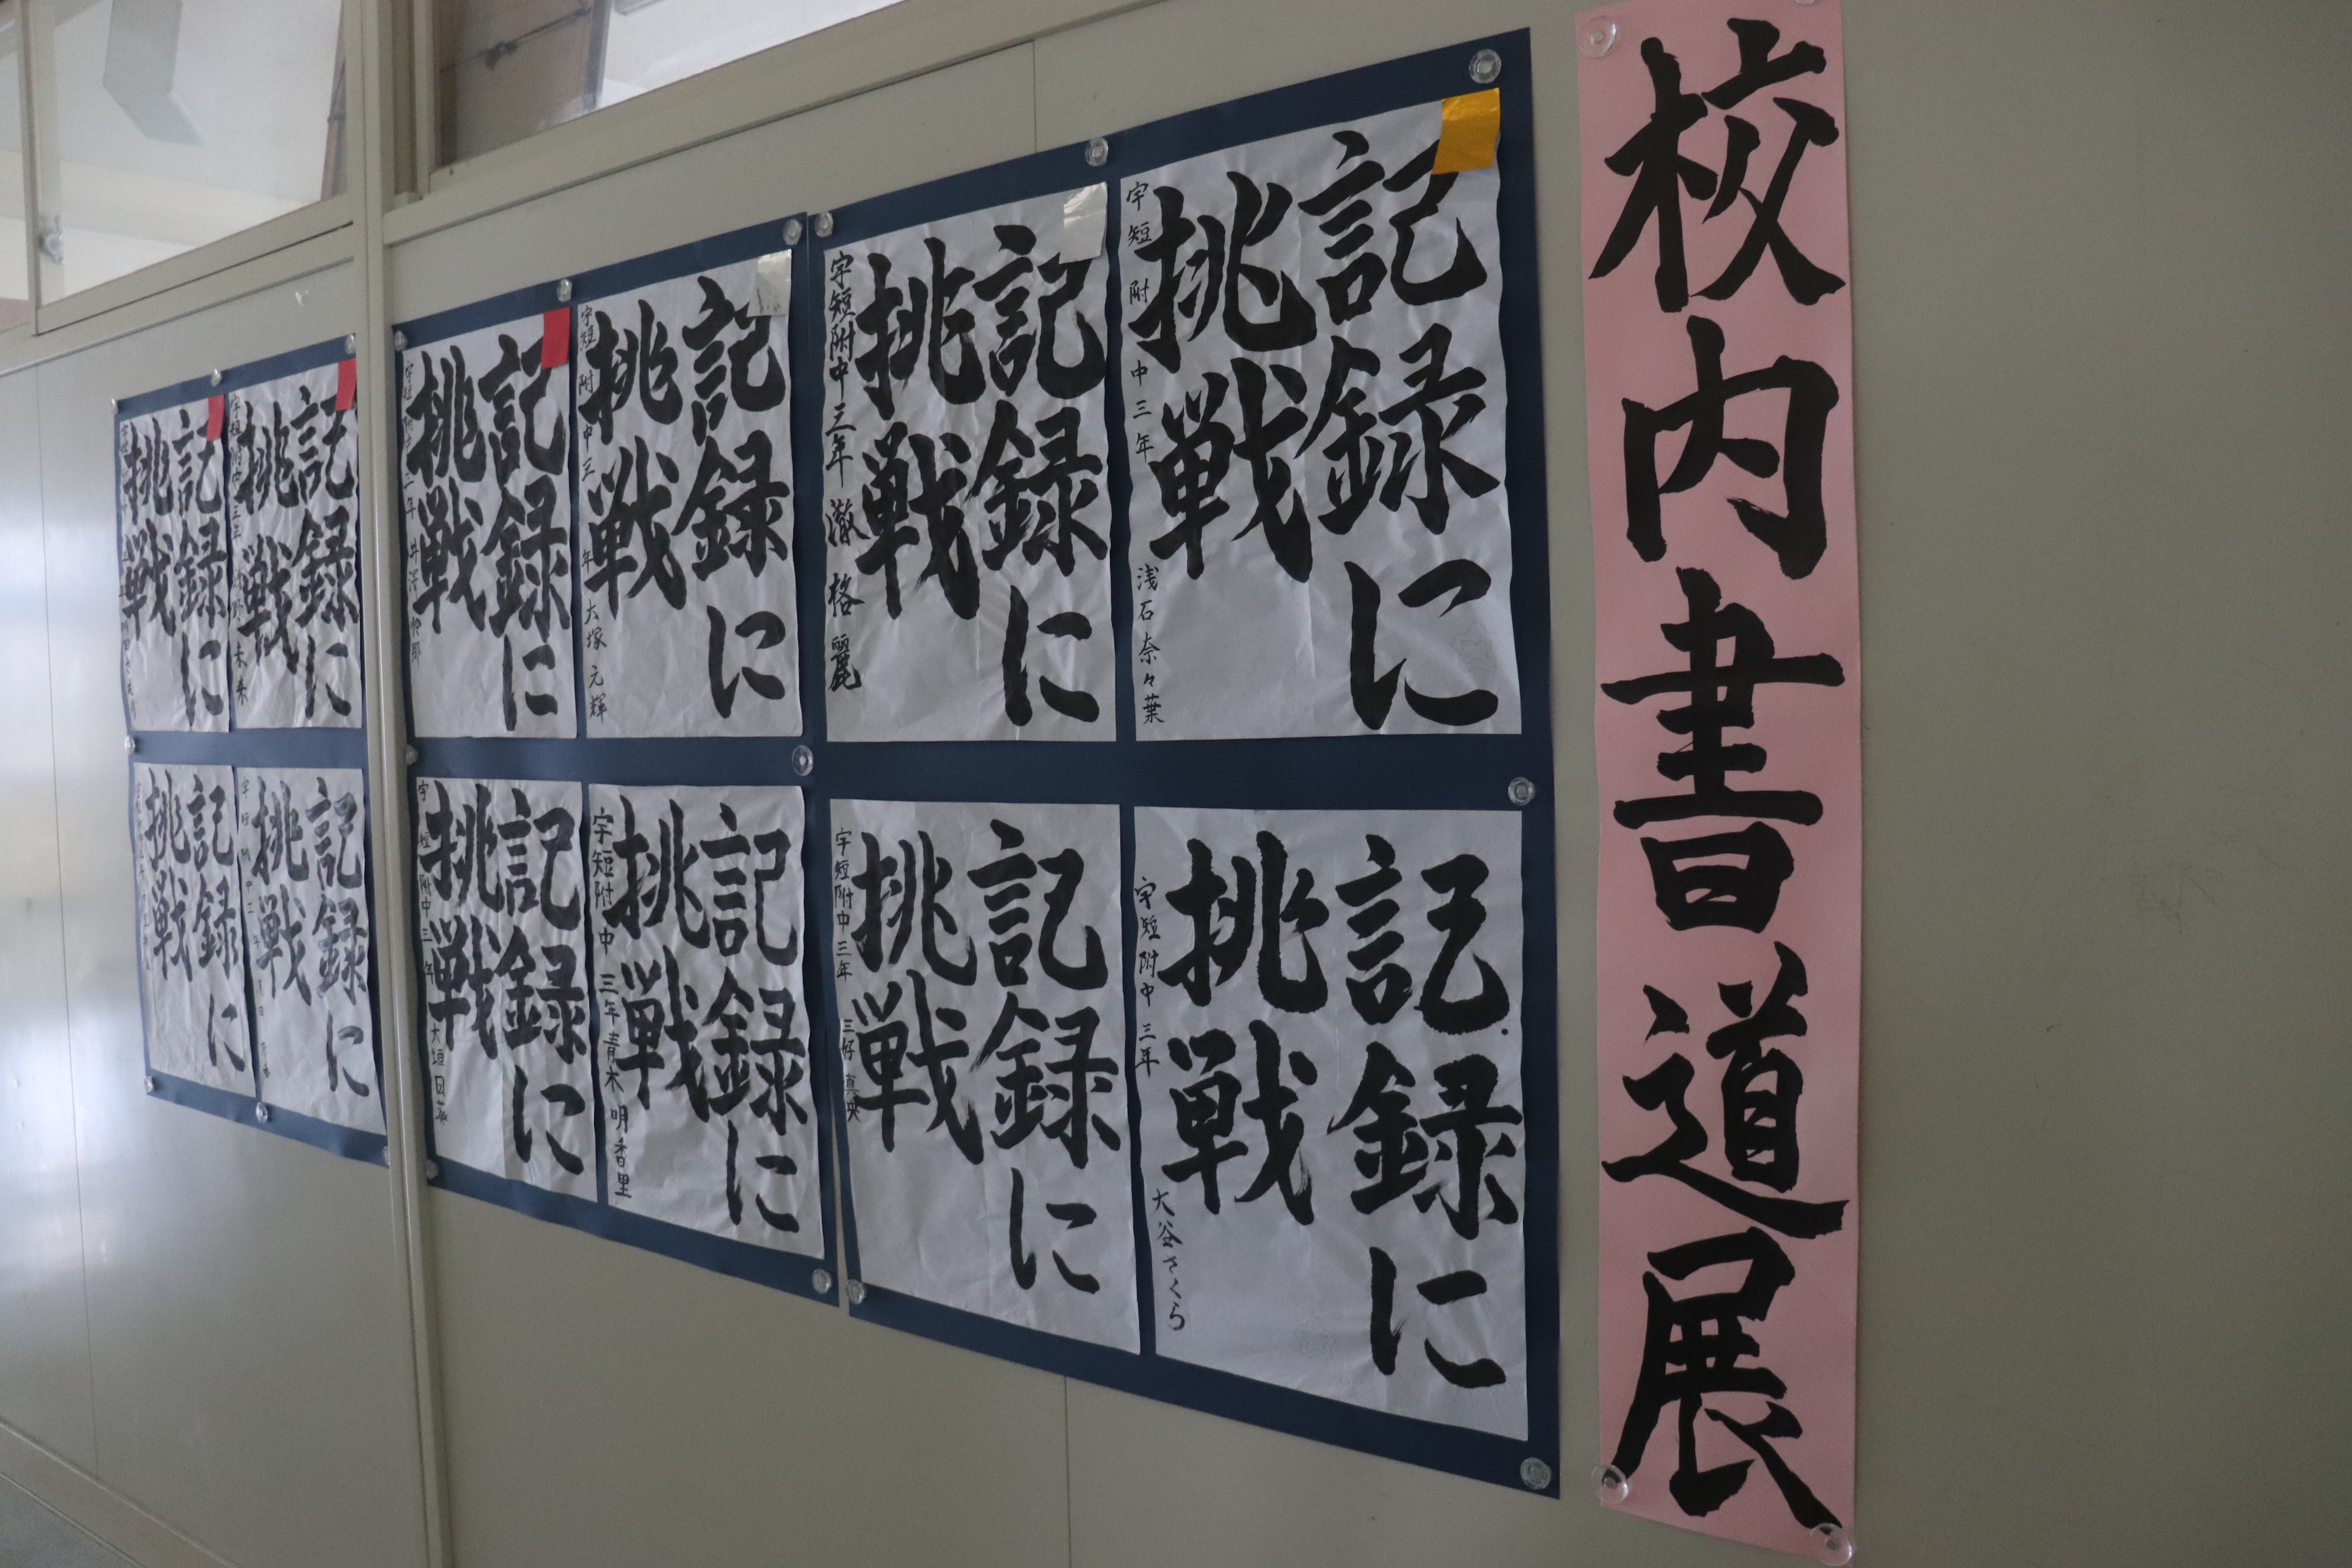 校内書道展
記録に
挑戦
宇短附中三年 浅石奈々葉
記録に
挑戦
宇短附中三年 澈格麗
記録に
挑戦
宇短附中三年 大塚元輝
記録に
挑戦
宇短附中三年 井澤
記録に
挑戦
記録に
挑戦
記録に
挑戦
宇短附中三年 大谷さくら
記録に
挑戦
宇短附中三年 三好真央
記録に
挑戦
宇短附中三年 青木明香里
記録に
挑戦
宇短附中三年 大垣
記録に
挑戦
宇短附中三年
記録に
挑戦